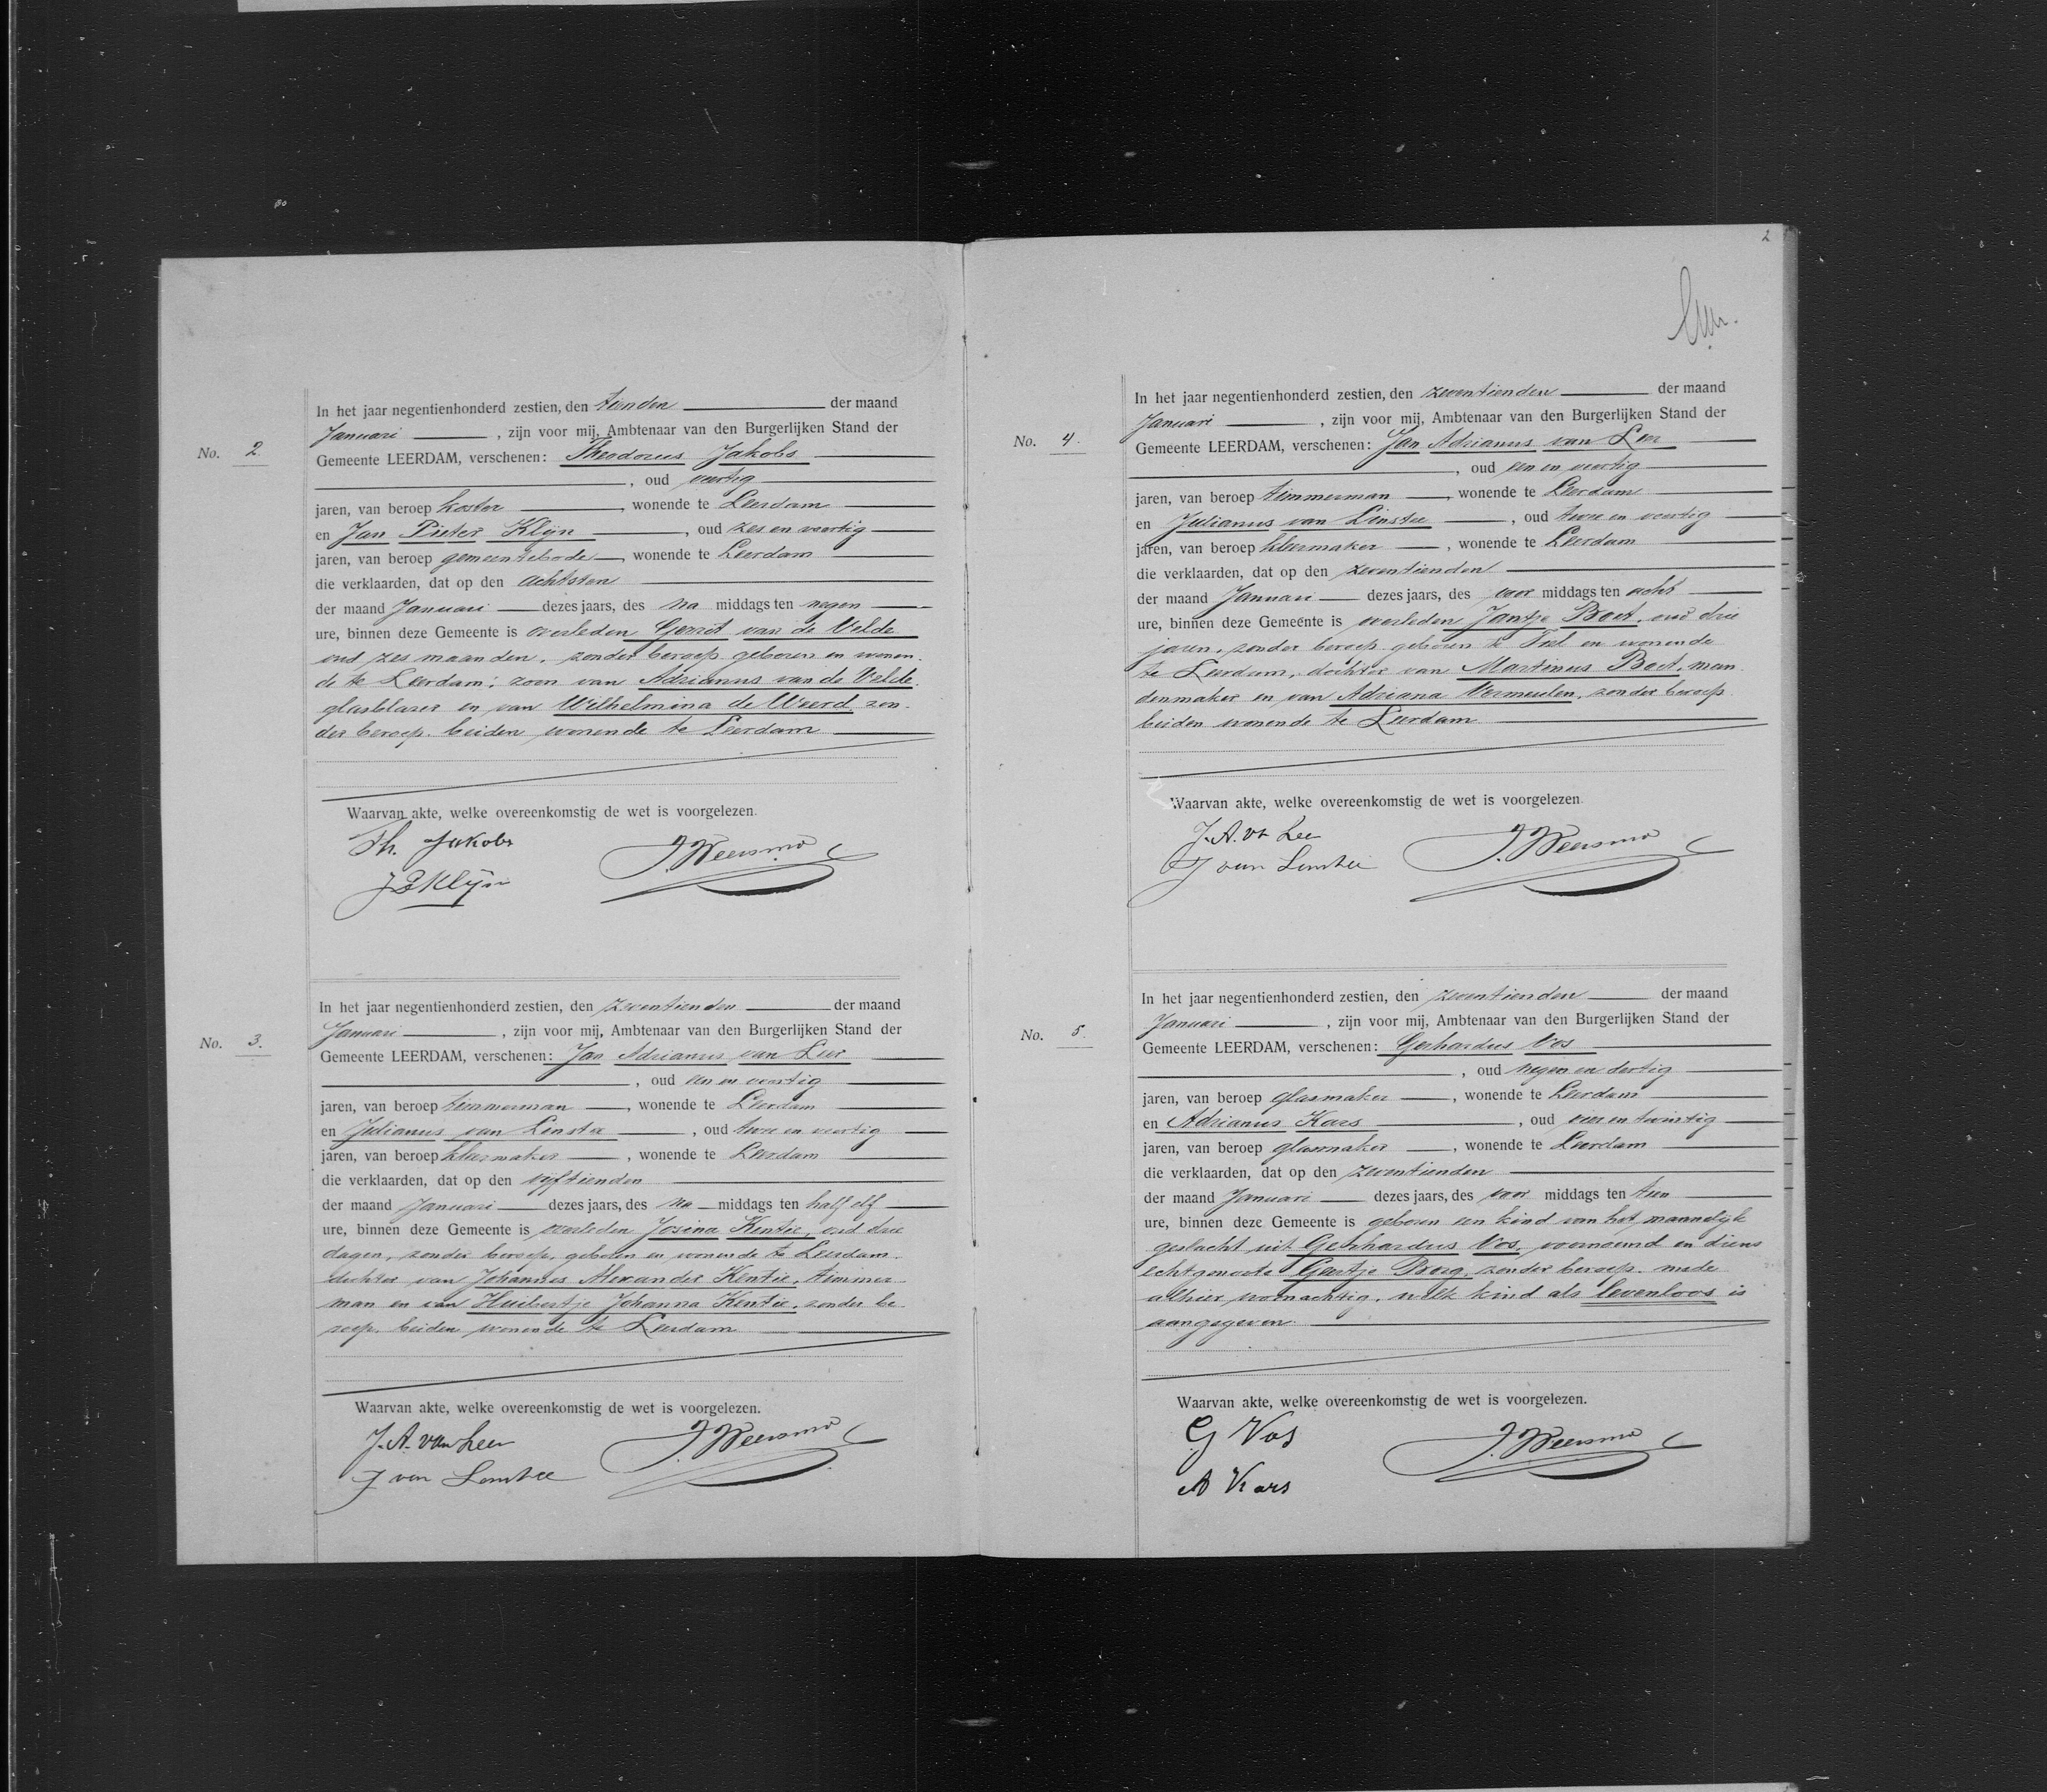 In het jaar negentienhonderd zestien, den tienden der maand
Januari, zijn voor mij, Ambtenaar van den Burgerlijken Stand der
No. 2.
Gemeente LEERDAM, verschenen: Theodorus Jakobs
, oud veertig
jaren, van beroep koster, wonende te Leerdam
en Jan Pieter Klijn, oud zes en veertig
jaren, van beroep gemeentebode, wonende te Leerdam
die verklaarden, dat op den achtsten
der maand Januari dezes jaars, des na middags ten negen
ure, binnen deze Gemeente is overleden Gerrit van de Velde
oud zes maanden, zonder beroep geboren en wonen-
de te Leerdam; zoon van Adrianus van de Velde
glasblazer en van Wilhelmina de Weerd zon-
der beroep, beiden wonende te Leerdam
Waarvan akte, welke overeenkomstig de wet is voorgelezen.
Th. Jakobs
J.P. Klijn
J. Weersma
In het jaar negentienhonderd zestien, den zeventienden der maand
Januari, zijn voor mij, Ambtenaar van den Burgerlijken Stand der
No. 3.
Gemeente LEERDAM, verschenen: Jan Adrianus van Leer
, oud een en veertig
jaren, van beroep timmerman, wonende te Leerdam
en Julianus van Linstee, oud twee en veertig
jaren, van beroep kleermaker, wonende te Leerdam
die verklaarden, dat op den vijftienden
der maand Januari dezes jaars, des na middags ten half elf
ure, binnen deze Gemeente is overleden Josina Kentie, oud drie
dagen, zonder beroep, geboren en wonende te Leerdam.
dochter van Johannes Alexander Kentie, timmer-
man en van Huibertje Johanna Kentie, zonder be-
roep, beiden wonende te Leerdam
Waarvan akte, welke overeenkomstig de wet is voorgelezen.
J.A. van Leer
J van Linstee
J. Weersma
2
In het jaar negentienhonderd zestien, den zeventienden der maand
Januari, zijn voor mij, Ambtenaar van den Burgerlijken Stand der
No. 4.
Gemeente LEERDAM, verschenen: Jan Adrianus van Leer
, oud een en veertig
jaren, van beroep timmerman, wonende te Leerdam
en Julianus van Linstee, oud twee en veertig
jaren, van beroep kleermaker, wonende te Leerdam
die verklaarden, dat op den zeventienden
der maand Januari dezes jaars, des voor middags ten acht
ure, binnen deze Gemeente is overleden Jantje Boet, oud drie
jaren, zonder beroep geboren te Tiel en wonende
te Leerdam, dochter van Martinus Boet, man-
denmaker en van Adriana Vermeulen, zonder beroep
beiden wonende te Leerdam
Waarvan akte, welke overeenkomstig de wet is voorgelezen.
J.A. vn Lee
J van Linstee
J. Weersma
In het jaar negentienhonderd zestien, den zeventienden der maand
Januari, zijn voor mij, Ambtenaar van den Burgerlijken Stand der
No. 5.
Gemeente LEERDAM, verschenen: Gerhardus Vos
, oud negen en dertig
jaren, van beroep glasmaker, wonende te Leerdam
en Adrianus Kars, oud vier en twintig
jaren, van beroep glasmaker, wonende te Leerdam
die verklaarden, dat op den zeventienden
der maand Januari dezes jaars, des voor middags ten tien
ure, binnen deze Gemeente is geboren een kind van het mannelijk
geslacht uit Gerhardus Vos, voornoemd en diens
echtgenoote Geertje Borg, zonder beroep, mede
alhier woonachtig, welk kind als levenloos is
aangegeven.
Waarvan akte, welke overeenkomstig de wet is voorgelezen.
G Vos
A Kars
J. Weersma